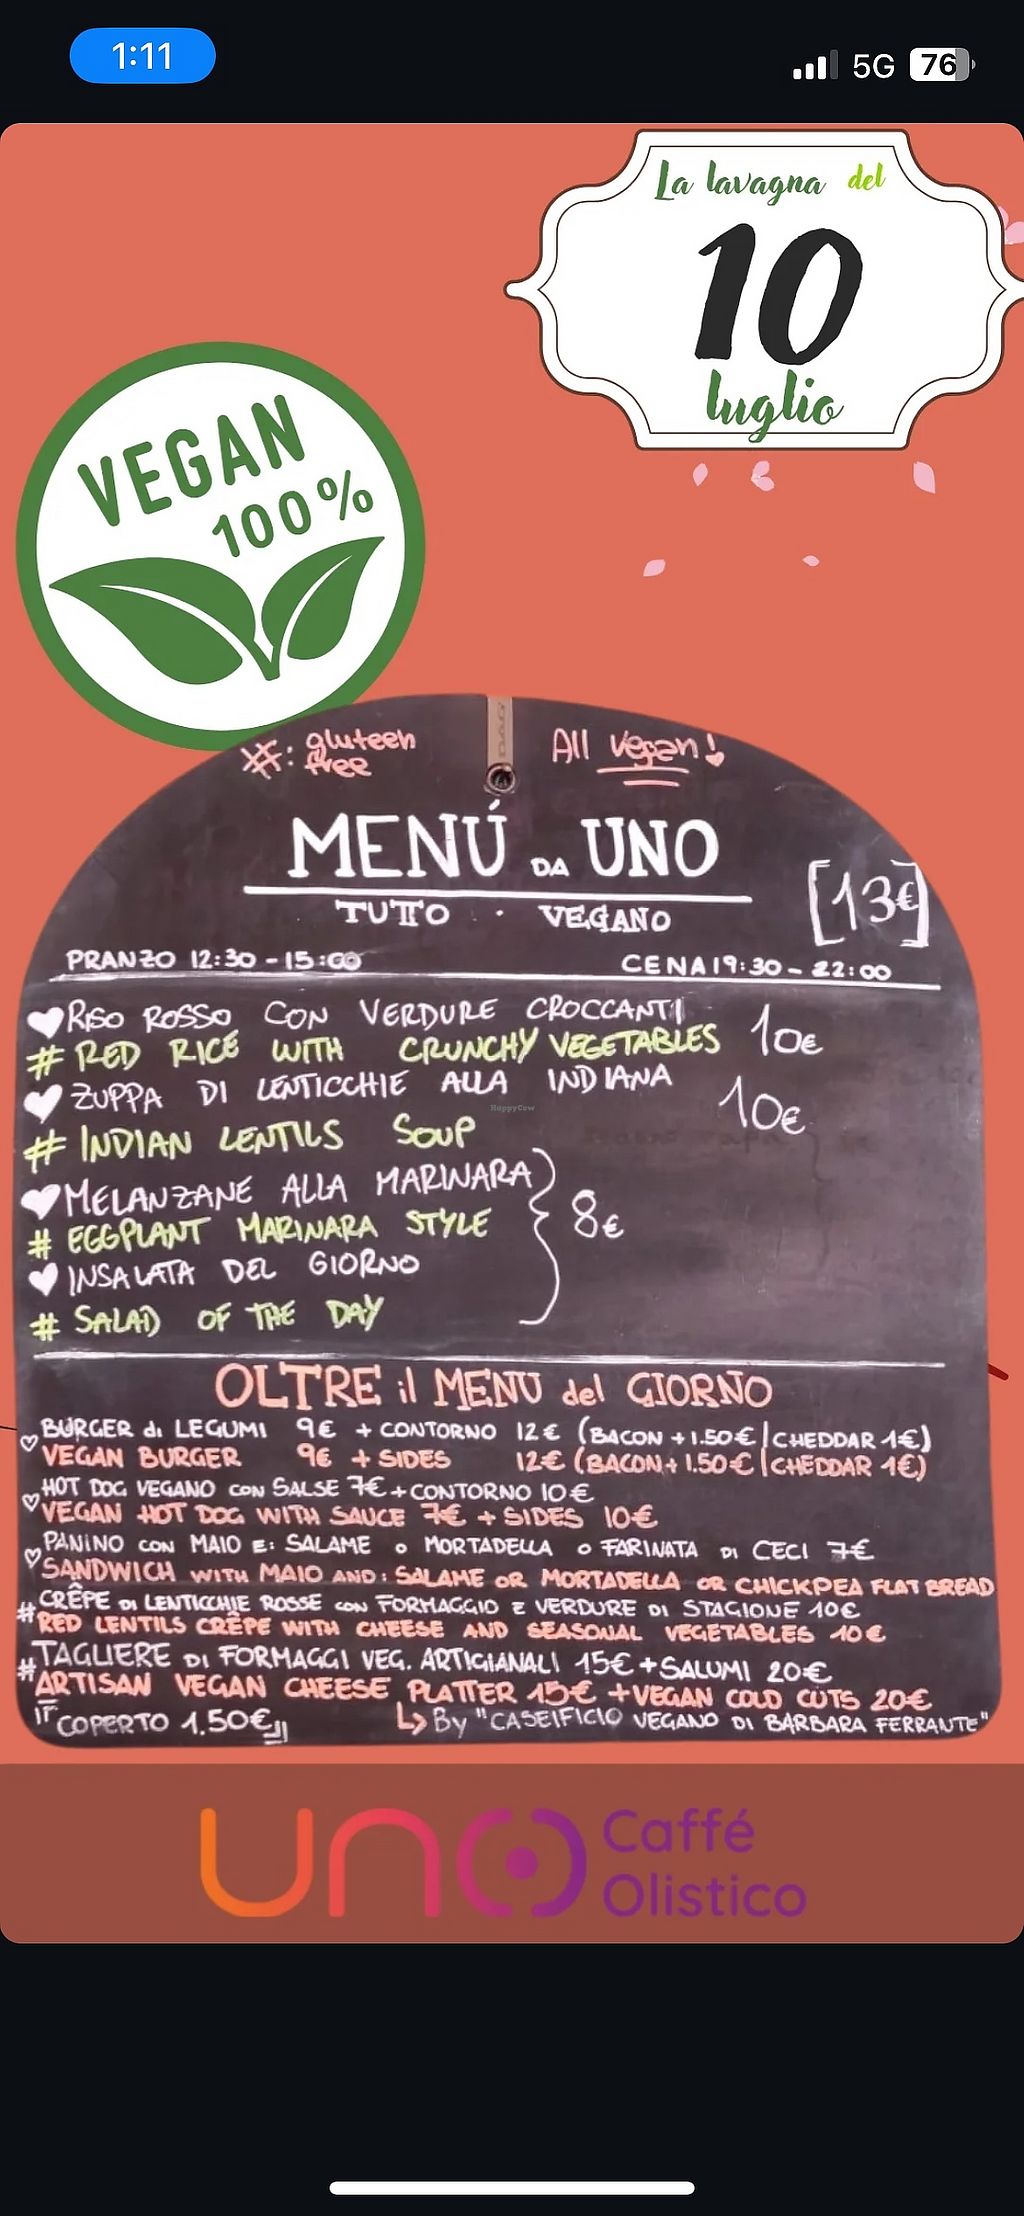 1:11
5G 76
La lavagna del
10
luglio
VEGAN
100%
#: gluteen
free
All vegan!
DAG
MENÚ DA UNO
[13€]
TUTTO · VEGANO
PRANZO 12:30 - 15:00
CENA 19:30 - 22:00
RISO ROSSO CON VERDURE CROCCANTI
# RED RICE WITH CRUNCHY VEGETABLES 10€
ZUPPA DI LENTICCHIE ALLA INDIANA
# INDIAN LENTILS SOUP 10€
HappyCow
MELANZANE ALLA MARINARA
# EGGPLANT MARINARA STYLE 8€
INSALATA DEL GIORNO
# SALAD OF THE DAY
OLTRE il MENU del GIORNO
BURGER di LEGUMI 9€ + CONTORNO 12€ (BACON +1.50€ | CHEDDAR 1€)
VEGAN BURGER 9€ + SIDES 12€ (BACON+ 1.50€ | CHEDDAR 1€)
HOT DOG VEGANO CON SALSE 7€ + CONTORNO 10€
VEGAN HOT DOG WITH SAUCE 7€ + SIDES 10€
PANINO CON MAIO E: SALAME O MORTADELLA O FARINATA DI CECI 7€
SANDWICH WITH MAIO AND: SALAME OR MORTADELLA OR CHICKPEA FLAT BREAD
# CRÊPE DI LENTICCHIE ROSSE CON FORMAGGIO E VERDURE DI STAGIONE 10€
RED LENTILS CRÊPE WITH CHEESE AND SEASONAL VEGETABLES 10€
# TAGLIERE DI FORMAGGI VEG. ARTIGIANALI 15€ + SALUMI 20€
ARTISAN VEGAN CHEESE PLATTER 15€ + VEGAN COLD CUTS 20€
COPERTO 1.50€
By "CASEIFICIO VEGANO DI BARBARA FERRANTE"
UNO Caffé
Olistico